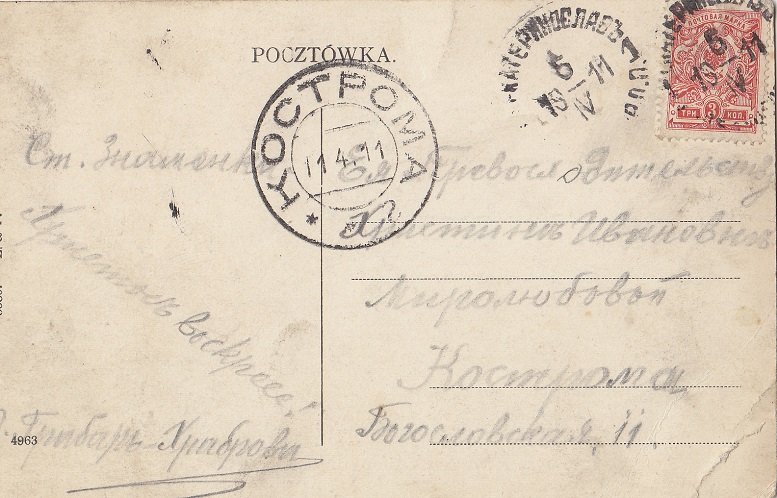 POCZTÓWKA.
ЕКАТЕРИНОСЛАВЪ
5
1911
IV
ПОЧТОВАЯ МАРКА
ТРИ 3 КОП.
КОСТРОМА
11.4.11
Ст. Знаменка
Христосъ воскресе!
Грибаръ-Храброва
Ея Превосходительству
Христинѣ Ивановнѣ
Миролюбовой
Кострома
Богословская, 11.
4963